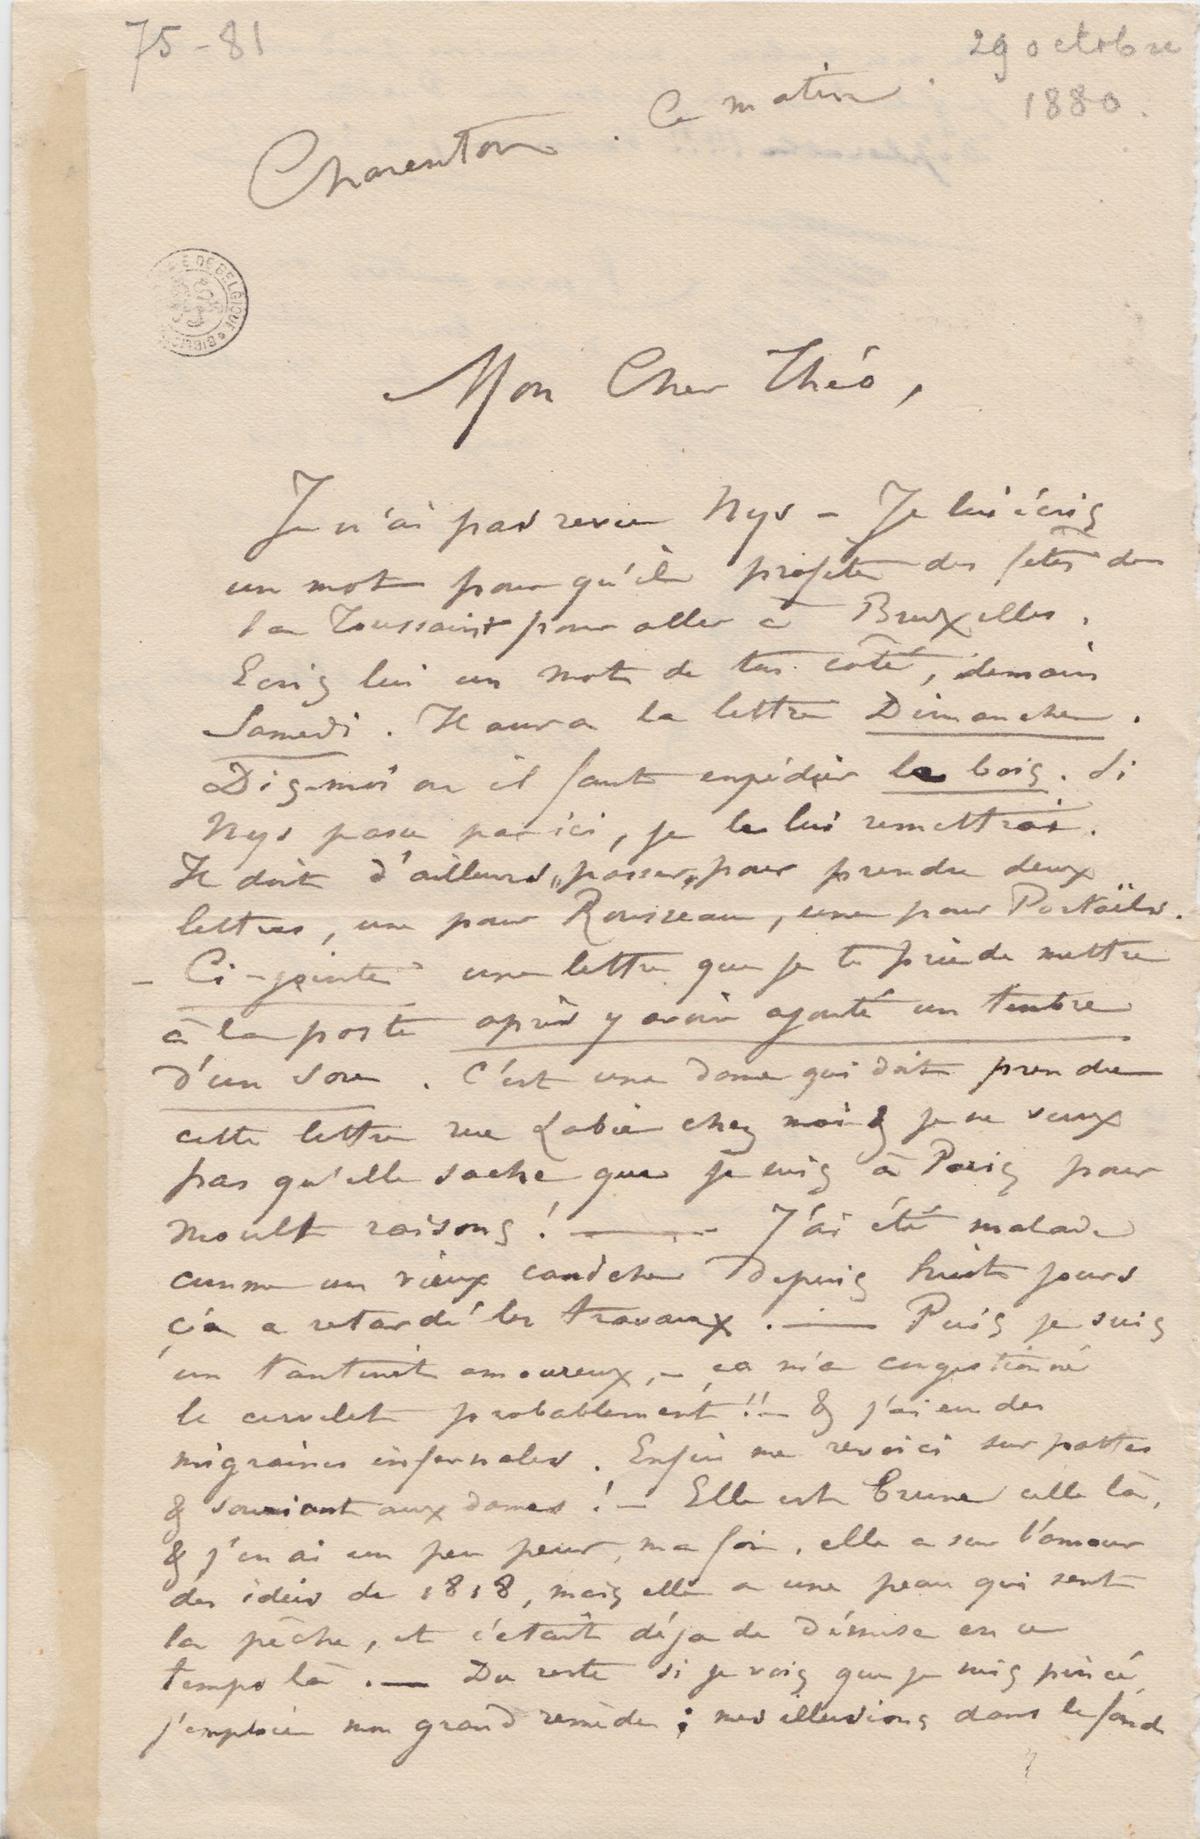 75-81
29 octobre
1880.
Charenton. Ce matin.
E DE BELGIQUE * BIBLIO
Mon Cher Théo,
Je n'ai pas revu Nys – Je lui écris
un mot pour qu'il profite des fêtes de
la Toussaint pour aller à Bruxelles.
Ecris lui un mot de ton côté, demain
Samedi. Il aura la lettre Dimanche.
Dis-moi où il faut expédier le bois. Si
Nys passe par ici, je le lui remettrai.
Il doit d'ailleurs „passer„ pour prendre deux
lettres, une pour Rousseau, une pour Portaëls.
– Ci-jointe une lettre que je te prie de mettre
à la poste après y avoir ajouté un timbre
d'un sou. C'est une dame qui doit prendre
cette lettre rue Labie chez moi & je ne veux
pas qu'elle sache que je suis à Paris pour
moult raisons! — J'ai été malade
comme un vieux depuis huit jours
ça a retardé les travaux. — Puis je suis
un tantinet amoureux, – ça m'a congestionné
le cervelet probablement!! – & j'ai eu des
migraines infernales. Enfin me revoici sur pattes
& souriant aux dames! – Elle est brune celle là,
& j'en ai un peu peur, ma foi, elle a sur l'amour
des idées de 1818, mais elle a une peau qui sent
la pêche, et c'était déjà de mise en ce
temps là. — Du reste si je vois que je suis pincé
j'emploie mon grand remède; mes illusions dans le fond